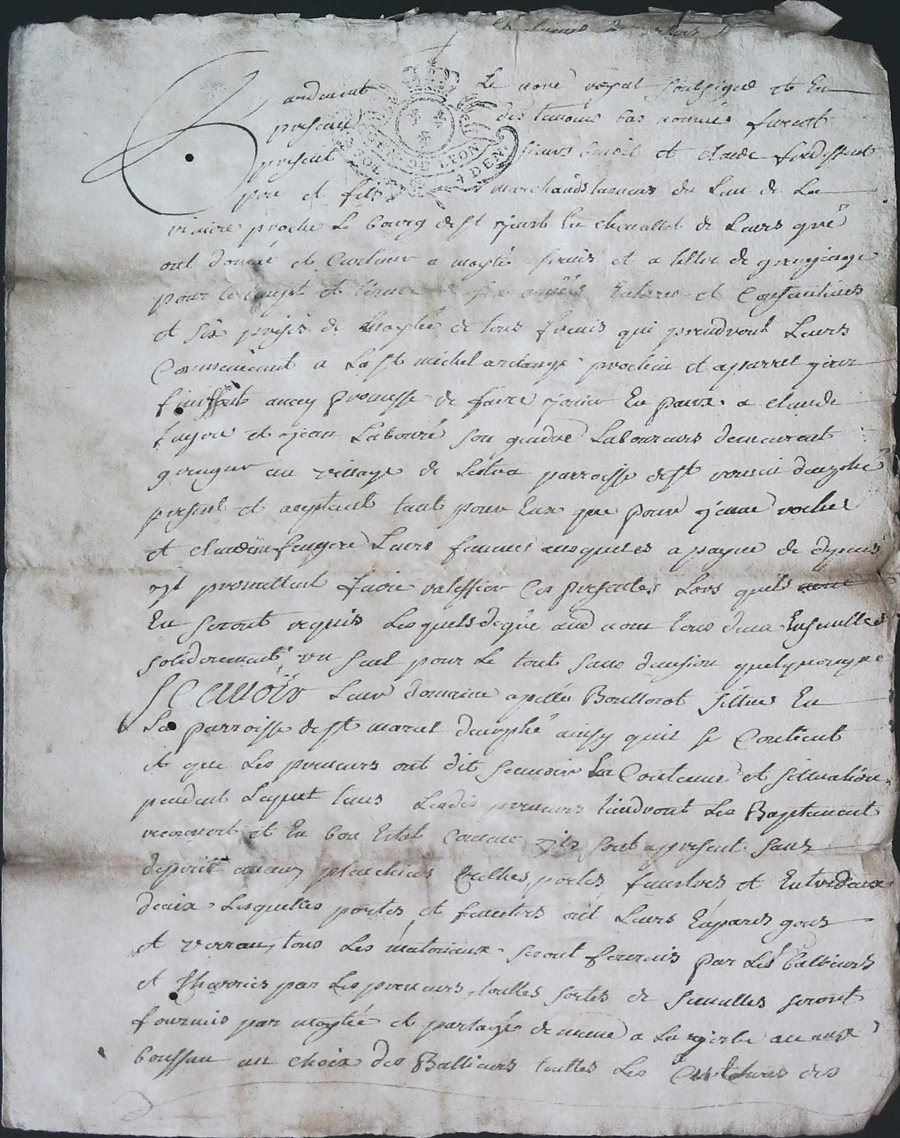 Pardevant Le nore royal soussigné et En
presence des temoins bas nommés furent
present sieurs benoit et claude
pere et fils marchands taneurs du Lieu de La
riviere proche Le bourg de st just En chevallet de Leurs gré
ont donné et a moytié fruis et a tiltre de grangeage
pour le temps et terme de six années Entieres et Consecutives
et six prises de moytié de tous fruis qui prendront Leurs
Commencement a La st michel archange prochin et a pareil jour
finissent avecq promesse de faire jouir En paix a claude
fugere et jean Labouré son gendre Laboureurs demeurent
granger au village de parroisse de st
present et aceptent tant pour Eux que pour jeane
et claudine fugere Leurs femmes ausqueles a payne de depans
ils promettent faire ratiffier Ces presentes Lors quils
En seront requis Lesquels de gré aud nom tous deux Ensembles
solidorement un seul pour Le tout sans division quelquonque
Scavoir Leur domaine apellé Boullorot sittué En
La parroisse de st marcel durphé ainsy quil se Contient
et que Les preneurs ont dit scavoir La Contenue et sittuation
pendant Lequel tems Lesdis preneurs tiendront Les Baptiment
recouvert et En bon Estat Comme ils sont apresent sans
deperir aucun planchies portes fenestres et Entredeux
daix Lesquelles portes et fenestres ont Leurs Epares gons
et verroux, tous Les matériaux seront fournis par Les balieurs
et Charriés par Les preneurs, touttes sortes de semalles seront
fournis par moytié et partagé de meme a La gerbe au
boisseau au choix des Ballieurs touttes Les des
DE LYON
DEN.